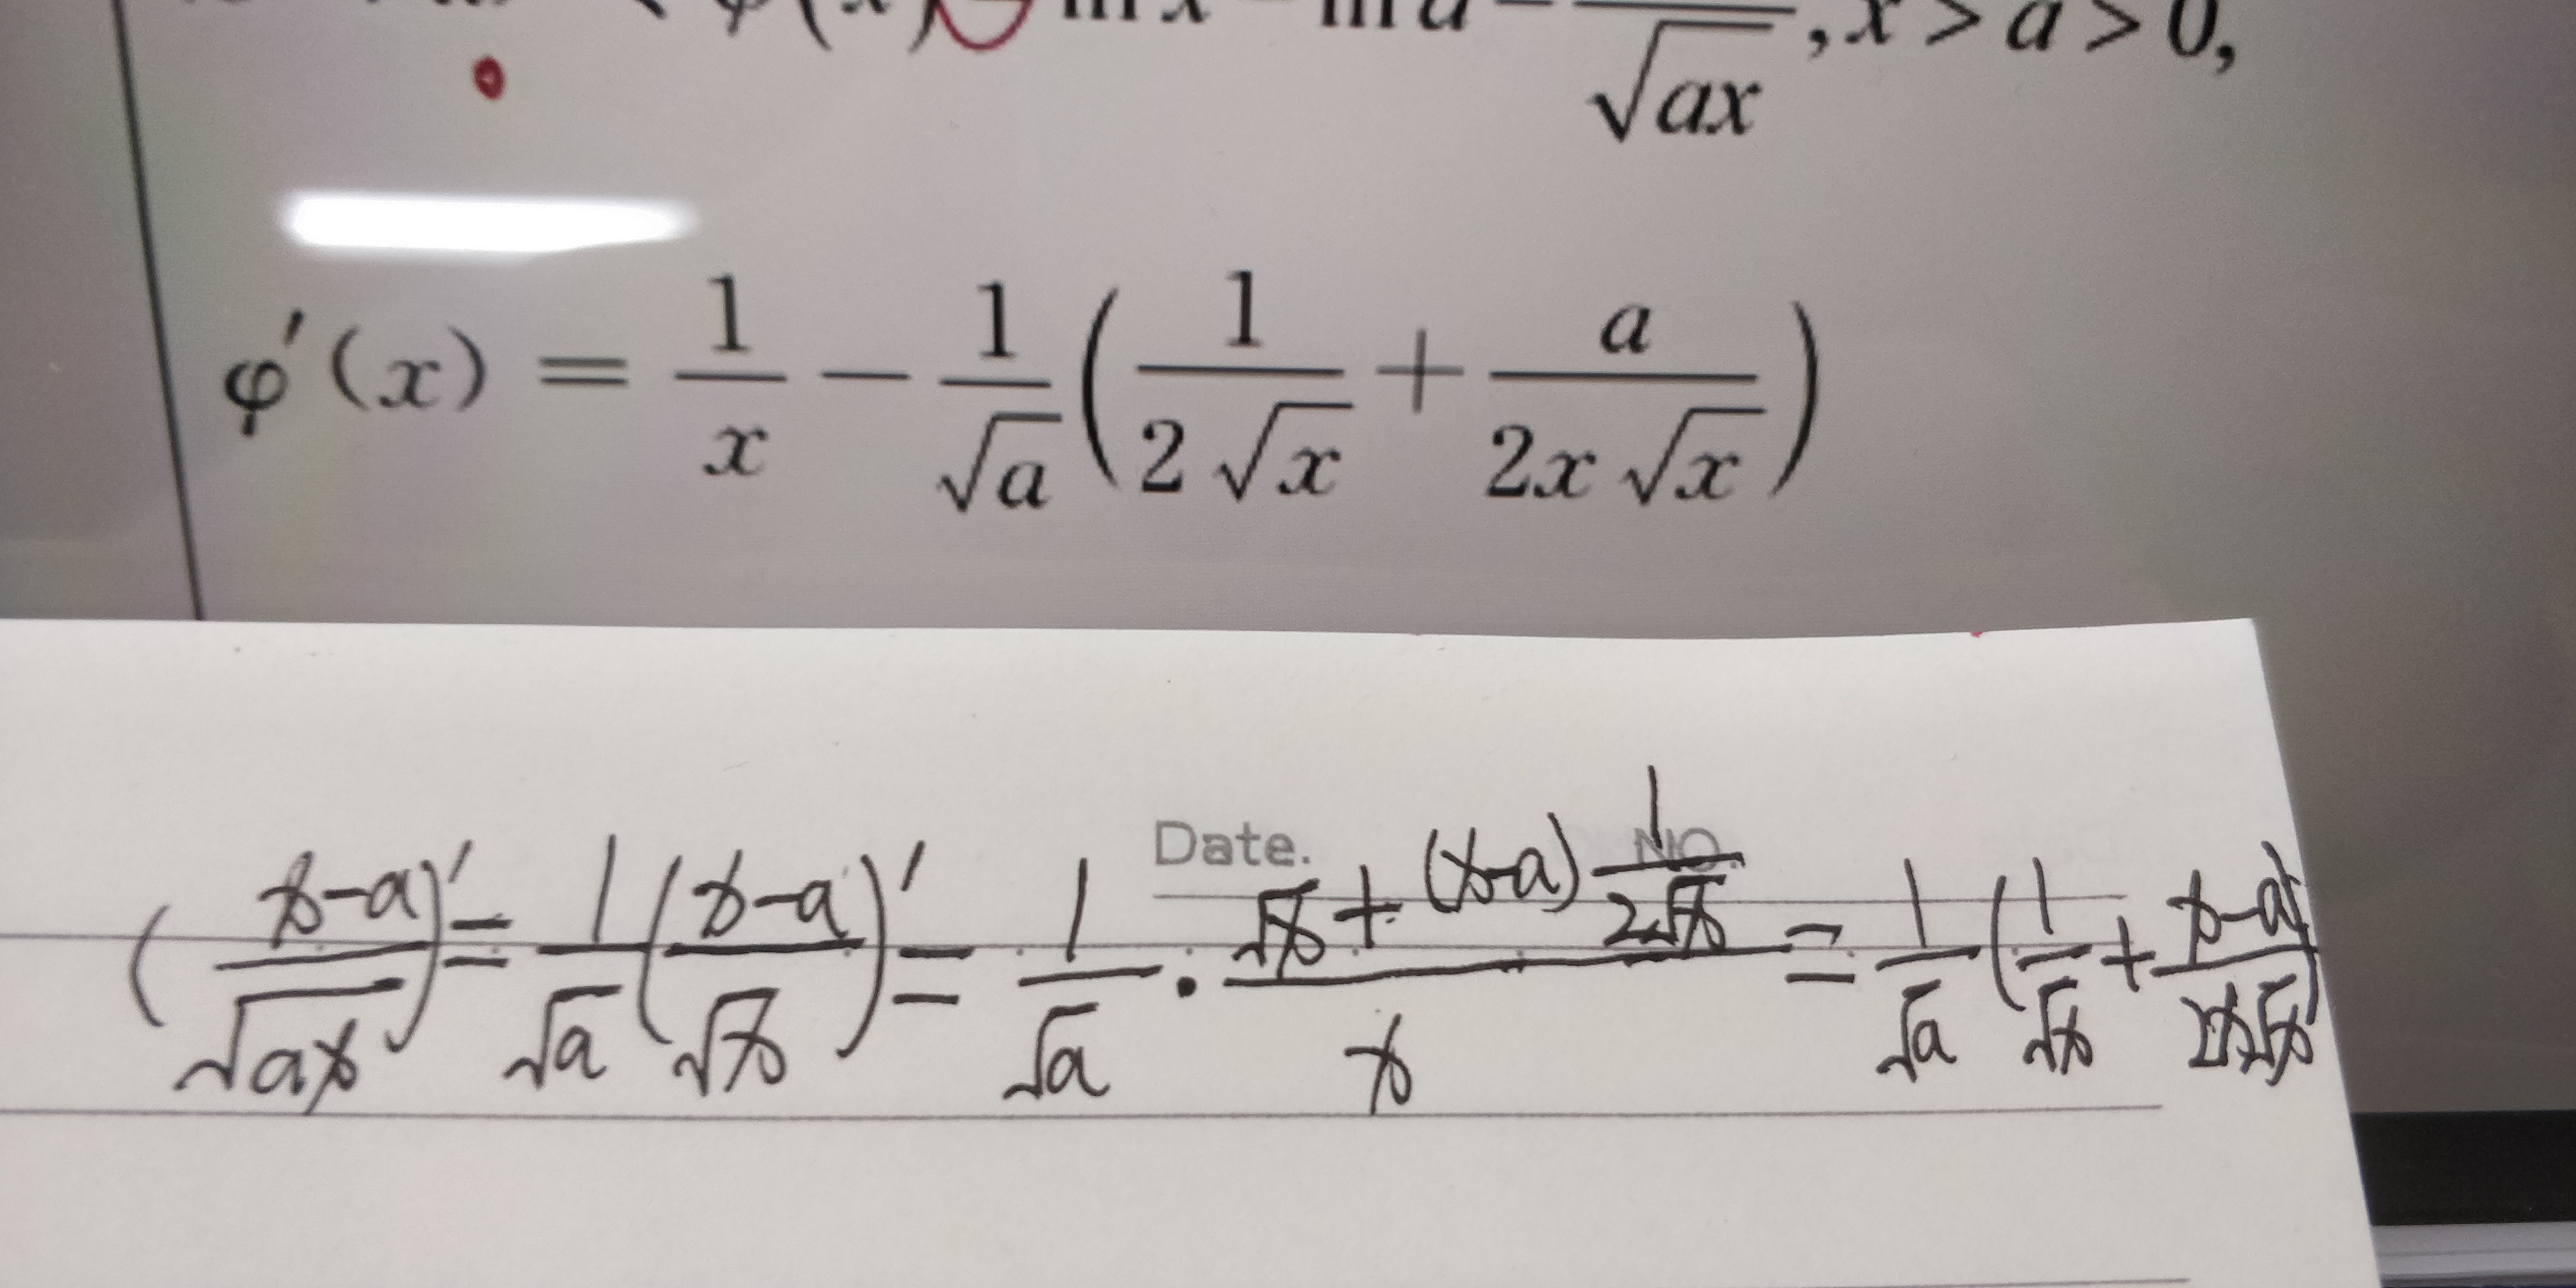 φ(x) = ln x - ln a - ―/√(ax), x > a > 0,
φ'(x) = 1/x - 1/√a (1/(2√x) + a/(2x√x))
Date. NO.
((x-a)/√(ax))' = 1/√a ((x-a)/√x)' = 1/√a · (√x + (x-a) 1/(2√x))/x = 1/√a (1/√x + (x-a)/(2x√x))